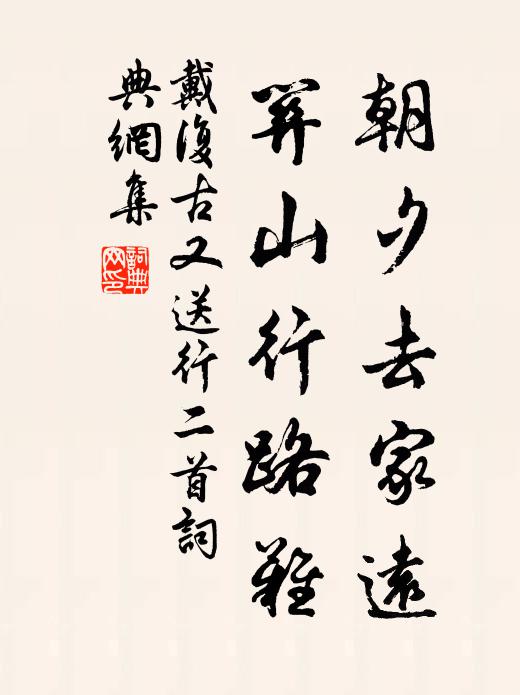 朝夕去家遠
山行路難
戴復古又送行二首詞
典網集
詞典網印